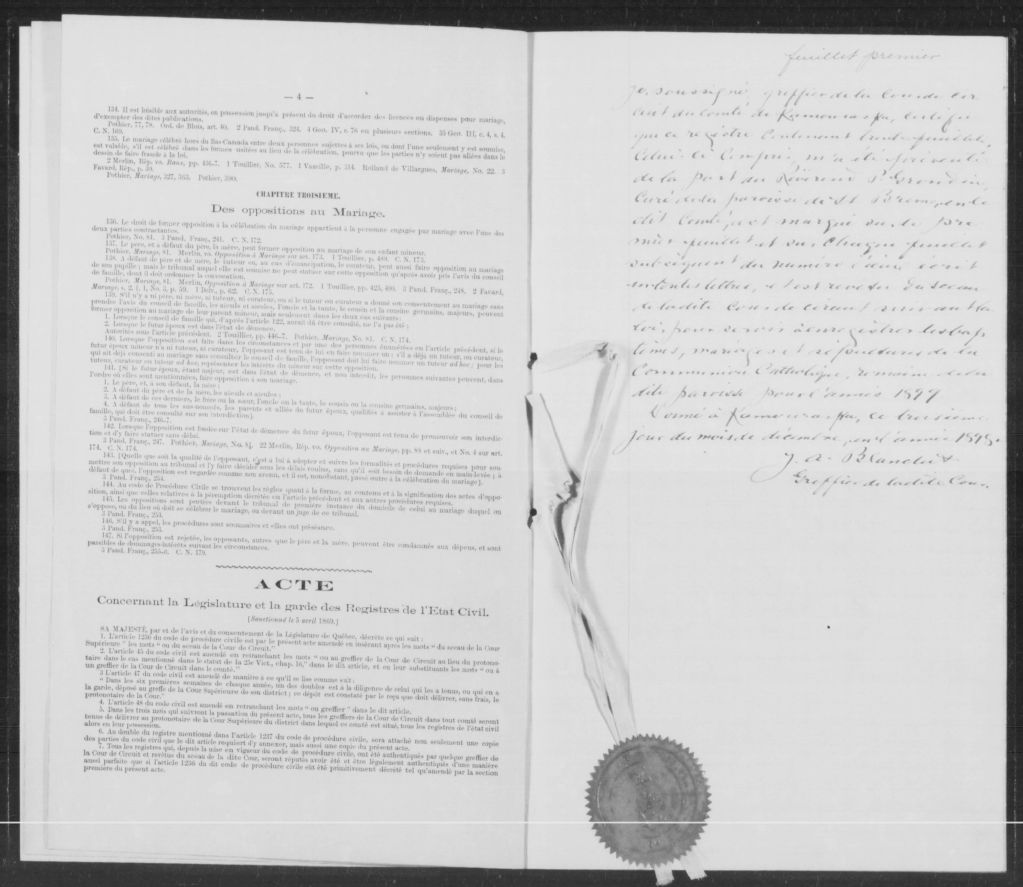 — 4 —
134. Il est loisible aux autorités, en possession jusqu'à présent du droit d'accorder des licences ou dispenses pour mariage,
d'exempter des dites publications.
Pothier, 77, 78. Ord. de Blois, art. 40. 2 Pand. Franç., 324. 4 Geo. IV, c. 76 en plusieurs sections. 35 Geo. III, c. 4, s. 4.
C. N. 169.
135. Le mariage célébré hors du Bas Canada entre deux personnes sujettes à ses lois, ou dont l'une seulement y est soumise,
est valable, s'il est célébré dans les formes usitées au lieu de la célébration, pourvu que les parties n'y soient pas allées dans le
dessein de faire fraude à la loi.
2 Merlin, Rép. vo. Bans, pp. 446-7. 1 Toullier, No. 577. 1 Vazeille, p. 314. Rolland de Villargues, Mariage, No. 22. 3
Favard, Rép., p. 39.
Pothier, Mariage, 327, 363. Pothier, 390.
CHAPITRE TROISIEME.
Des oppositions au Mariage.
136. Le droit de former opposition à la célébration du mariage appartient à la personne engagée par mariage avec l'une des
deux parties contractantes.
Pothier, No. 81. 3 Pand. Franç., 241. C. N. 172.
137. Le père, et à défaut du père, la mère, peut former opposition au mariage de son enfant mineur.
Pothier, Mariage, 81. Merlin, vo. Opposition à Mariage sur art. 173. 1 Toullier, p. 489. C. N. 173.
138. A défaut de père et de mère, le tuteur ou, au cas d'émancipation, le curateur, peut aussi faire opposition au mariage
de son pupille ; mais le tribunal auquel elle est soumise ne peut statuer sur cette opposition qu'après avoir pris l'avis du conseil
de famille, dont il doit ordonner la convocation.
Pothier, Mariage, 81. Merlin, Opposition à Mariage sur art. 172. 1 Toullier, pp. 423, 490. 3 Pand. Franç., 248. 2 Favard,
Mariage, s. 2, § 1, No. 3, p. 59. 1 Delv., p. 62. C. N. 175.
139. S'il n'y a ni père, ni mère, ni tuteur, ni curateur, ou si le tuteur ou curateur a donné son consentement au mariage sans
prendre l'avis du conseil de famille, les aïeuls et aïeules, l'oncle et la tante, le cousin et la cousine germains, majeurs, peuvent
former opposition au mariage de leur parent mineur, mais seulement dans les deux cas suivants :
1. Lorsque le conseil de famille qui, d'après l'article 122, aurait dû être consulté, ne l'a pas été ;
2. Lorsque le futur époux est dans l'état de démence.
Autorités sous l'article précédent. 2 Toullier, pp. 446-7. Pothier, Mariage, No. 81. C. N. 174.
140. Lorsque l'opposition est faite dans les circonstances et par une des personnes énumérées en l'article précédent, si le
futur époux mineur n'a ni tuteur, ni curateur, l'opposant est tenu de lui en faire nommer un ; s'il a déjà un tuteur, ou curateur,
qui ait déjà consenti au mariage sans consulter le conseil de famille, l'opposant doit lui faire nommer un tuteur ad hoc ; pour les
tuteur, curateur ou tuteur ad hoc, représenter les intérêts du mineur sur cette opposition.
141. [Si le futur époux, étant majeur, est dans l'état de démence, et non interdit, les personnes suivantes peuvent, dans
l'ordre où elles sont mentionnées, faire opposition à son mariage.
1. Le père, et, à son défaut, la mère ;
2. A défaut du père et de la mère, les aïeuls et aïeules ;
3. A défaut de ces derniers, le frère ou la sœur, l'oncle ou la tante, le cousin ou la cousine germains, majeurs ;
4. A défaut de tous les sus-nommés, les parents et alliés du futur époux, qualifiés à assister à l'assemblée du conseil de
famille, qui doit être consulté sur son interdiction].
3 Pand. Franç., 246-7.
142. Lorsque l'opposition est fondée sur l'état de démence du futur époux, l'opposant est tenu de promouvoir son interdic-
tion et d'y faire statuer sans délai.
3 Pand. Franç., 247. Pothier, Mariage, No. 81. 22 Merlin, Rép. vo. Opposition au Mariage, pp. 88 et suiv., et No. 4 sur art.
174. C. N. 174.
143. [Quelle que soit la qualité de l'opposant, c'est à lui à adopter et suivre les formalités et procédures requises pour sou-
mettre son opposition au tribunal et l'y faire décider sous les délais voulus, sans qu'il soit besoin de demande en main-levée ; à
défaut de quoi, l'opposition est regardée comme non avenue, et il est, nonobstant, passé outre à la célébration du mariage].
3 Pand. Franç., 254.
144. Au code de Procédure Civile se trouvent les règles quant à la forme, au contenu et à la signification des actes d'oppo-
sition, ainsi que celles relatives à la péremption décrétée en l'article précédent et aux autres procédures requises.
145. Les oppositions sont portées devant le tribunal de première instance du domicile de celui au mariage duquel on
s'oppose, ou du lieu où doit se célébrer le mariage, ou devant un juge de ce tribunal.
3 Pand. Franç., 253.
146. S'il y a appel, les procédures sont sommaires et elles ont préséance.
3 Pand. Franç., 253.
147. Si l'opposition est rejetée, les opposants, autres que le père et la mère, peuvent être condamnés aux dépens, et sont
passibles de dommages-intérêts suivant les circonstances.
3 Pand. Franç., 255-6. C. N. 179.
ACTE
Concernant la Législature et la garde des Registres de l'Etat Civil.
[Sanctionné le 5 avril 1869.]
SA MAJESTÉ, par et de l'avis et du consentement de la Législature de Québec, décrète ce qui suit :
1. L'article 1236 du code de procédure civile est par le présent acte amendé en insérant après les mots "du sceau de la Cour
Supérieure" les mots "ou du sceau de la Cour de Circuit."
2. L'article 45 du code civil est amendé en retranchant les mots "ou au greffier de la Cour de Circuit au lieu du protono-
taire dans le cas mentionné dans le statut de la 25e Vict., chap. 16," dans le dit article, et en leur substituant les mots "ou à
un greffier de la Cour de Circuit dans le comté."
3 L'article 47 du code civil est amendé de manière à ce qu'il se lise comme suit :
"Dans les six premières semaines de chaque année, un des doubles est à la diligence de celui qui les a tenus, ou qui en a
la garde, déposé au greffe de la Cour Supérieure de son district ; ce dépôt est constaté par le reçu que doit délivrer, sans frais, le
protonotaire de la Cour."
4. L'article 48 du code civil est amendé en retranchant les mots "ou greffier" dans le dit article.
5. Dans les trois mois qui suivront la passation du présent acte, tous les greffiers de la Cour de Circuit dans tout comté seront
tenus de délivrer au protonotaire de la Cour Supérieure du district dans lequel ce comté est situé, tous les registres de l'état civil
alors en leur possession.
6. Au double du registre mentionné dans l'article 1237 du code de procédure civile, sera attaché non seulement une copie
des parties du code civil que le dit article requiert d'y annexer, mais aussi une copie du présent acte.
7. Tous les registres qui, depuis la mise en vigueur du code de procédure civile, ont été authentiqués par quelque greffier de
la Cour de Circuit et revêtus du sceau de la dite Cour, seront réputés avoir été et être légalement authentiqués d'une manière
aussi parfaite que si l'article 1236 du dit code de procédure civile eût été primitivement décrété tel qu'amendé par la section
première du présent acte.
feuillet premier
Je, soussigné, greffier de la Cour de Cir
cuit du comté de Kamouraska, certifie
que ce registre contenant trente feuillets,
celui-ci compris m'a été présenté
de la part du Révérend P. Grondin,
Curé de la paroisse de St
dit Comté, et marqué sur le pre
mier feuillet et sur chaque feuillet
subséquent du numéro d'icelui écrit
en toutes lettres, et est revêtu du sceau
de la dite Cour de circuit suivant la
loi, pour servir à enregistrer les bap
têmes, mariages et sépultures de la
Communion Catholique, romaine de la
dite paroisse pour l'année 1899
Donné à Kamouraska, ce troisième
jour du mois de décembre, en l'année 1898.
J. A. Blanchet
Greffier de la dite Cour.